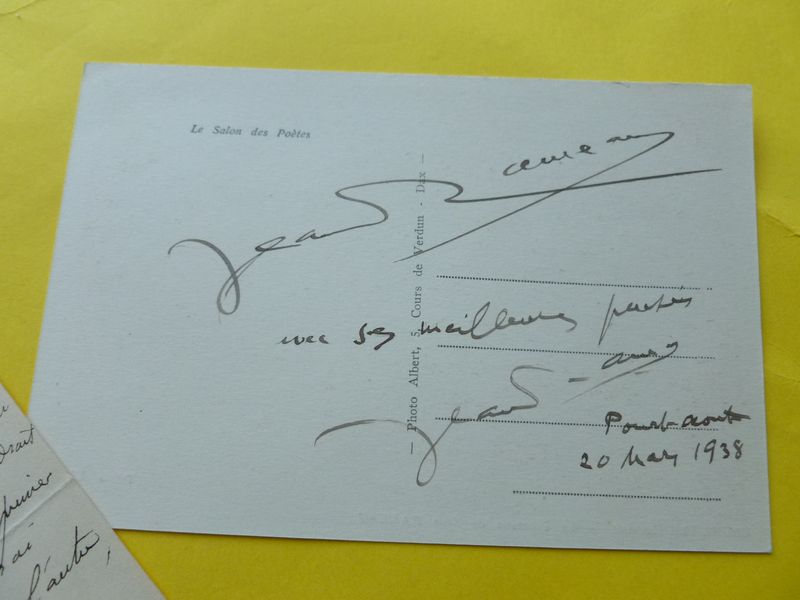 Le Salon des Poètes
Jean Rameau
— Photo Albert, 5, Cours de Verdun - Dax —
avec ses meilleures pensées
Jean Rameau
Pourtaout
20 Mars 1938
droit
premier
ai
l'autre,